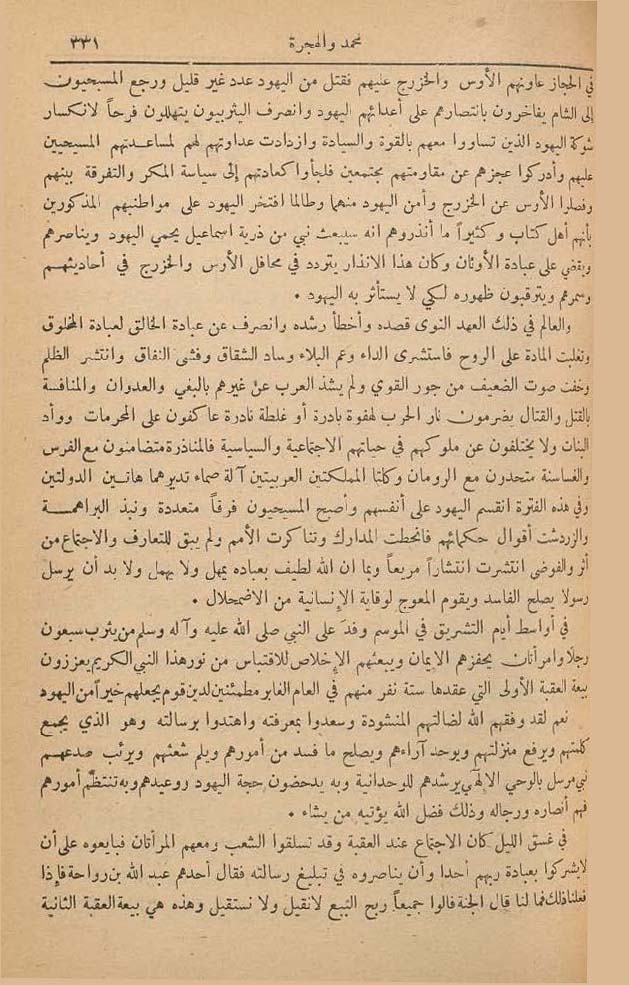 محمد والهجرة ٣٣١
في الحجاز عاونهم الأوس والخزرج عليهم فقتل من اليهود عدد غير قليل ورجع المسيحيون
إلى الشام يفاخرون بانتصارهم على أعدائهم اليهود وانصرف اليثربيون يتهللون فرحاً لانكسار
شوكة اليهود الذين تساووا معهم بالقوة والسيادة وازدادت عداوتهم لهم لمساعدتهم المسيحيين
عليهم وأدركوا عجزهم عن مقاومتهم مجتمعين فلجأوا كعادتهم إلى سياسة المكر والتفرقة بينهم
وفصلوا الأوس عن الخزرج وأمن اليهود منهما وطالما افتخر اليهود على مواطنيهم المذكورين
بأنهم أهل كتاب وكثيراً ما أنذروهم انه سيبعث نبي من ذرية اسماعيل يحمي اليهود ويناصرهم
ويقضي على عبادة الأوثان وكان هذا الانذار يتردد في محافل الأوس والخزرج في أحاديثهم
وسمرهم ويترقبون ظهوره لكي لا يستأثر به اليهود .
والعالم في ذلك العهد النوى قصده وأخطأ رشده وانصرف عن عبادة الخالق لعبادة المخلوق
وتغلبت المادة على الروح فاستشرى الداء وعم البلاء وساد الشقاق وفشى النفاق وانتشر الظلم
وخفت صوت الضعيف من جور القوي ولم يشذ العرب عن غيرهم بالبغي والعدوان والمنافسة
بالقتل والقتال يضرمون نار الحرب لهفوة بادرة أو غلطة نادرة عاكفون على المحرمات ووأد
البنات ولا يختلفون عن ملوكهم في حياتهم الاجتماعية والسياسية فالمناذرة متضامنون مع الفرس
والغساسنة متحدون مع الرومان وكلتا المملكتين العربيتين آلة صماء تديرهما هاتين الدولتين
وفي هذه الفترة انقسم اليهود على أنفسهم وأصبح المسيحيون فرقاً متعددة ونبذ البراهمة
والزردشت أقوال حكمائهم فانحطت المدارك وتناكرت الأمم ولم يبق للتعارف والاجتماع من
أثر والفوضى انتشرت انتشاراً مريعاً وبما ان الله لطيف بعباده يمهل ولا يهمل ولا بد أن يرسل
رسولا يصلح الفاسد ويقوم المعوج لوقاية الإنسانية من الاضمحلال .
في أواسط أيام التشريق في الموسم وفد على النبي صلى الله عليه وآله وسلم من يثرب سبعون
رجلا وامرأتان يحفزهم الإيمان ويبعثهم الإخلاص للاقتباس من نور هذا النبي الكريم يعززون
بيعة العقبة الأولى التي عقدها ستة نفر منهم في العام الغابر مطمئنين لدين قوم يجعلهم خيراً من اليهود
نعم لقد وفقهم الله لضالتهم المنشودة وسعدوا بمعرفته واهتدوا برسالته وهو الذي يجمع
كلمتهم ويرفع منزلتهم ويوحد آراءهم ويصلح ما فسد من أمورهم ويلم شعثهم ويرئب صدعهم
نبي مرسل بالوحي الإلهي يرشدهم للوحدانية وبه يدحضون حجة اليهود ووعيدهم وبه تنتظم أمورهم
فهم أنصاره ورجاله وذلك فضل الله يؤتيه من يشاء .
في غسق الليل كان الاجتماع عند العقبة وقد تسلقوا الشعب ومعهم المرأتان فبايعوه على أن
لا يشركوا بعبادة ربهم أحدا وأن يناصروه في تبليغ رسالته فقال أحدهم عبد الله بن رواحة فإذا
فعلنا ذلك فما لنا قال الجنة قالوا جميعاً ربح البيع لا نقيل ولا نستقيل وهذه هي بيعة العقبة الثانية